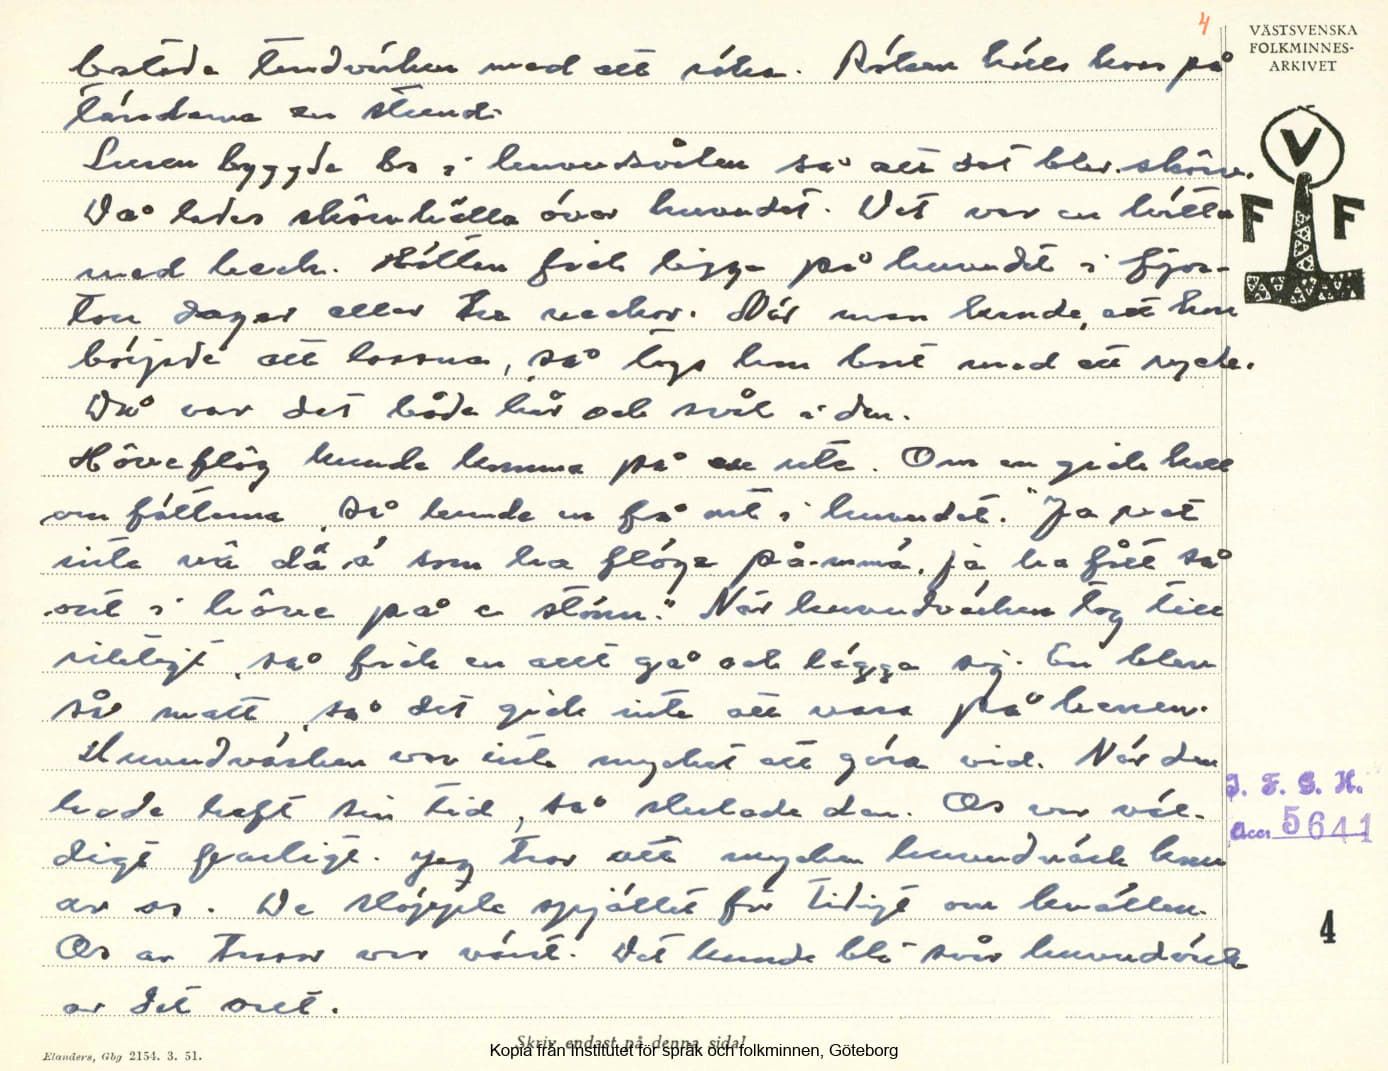 4
VÄSTSVENSKA
FOLKMINNES-
ARKIVET
V
F F
botade tandvärken med att röka. Röken hölls kvar på
tänderna en stund.
Lusen byggde bo i huvudsvålen så att det blev skörv.
Då lades skörvhätta över huvudet. Det var en hätta
med beck. Hättan fick ligga på huvudet i fjor-
ton dagar eller tre veckor. När man kände, att hon
började att lossna, så togs hon bort med ett ryck.
Då var det både hår och svål i den.
Hôveflôg kunde komma på en ute. Om en gick kall
om fötterna, så kunde en få ont i huvudet. "Ja vet
inte va dä ä som ha flöge på mä, ja ha fått så
ont i hôvve på e stönn." När huvudvärken tog till
riktigt, så fick en allt gå och lägga sig. En blev
så matt, så det gick inte att vara på benen.
Huvudvärken var inte mycket att göra vid. När den
hade haft sin tid, så slutade den. Os var väl-
digt farligt. Jag tror att mycken huvudvärk kom
av os. De släppte spjället för tidigt om kvällen.
Os av torv var värst. Det kunde bli svår huvudvärk
av det oset.
I. F. G. H.
Acc. 5641
4
Skriv endast på denna sida!
Elanders, Gbg 2154. 3. 51.
Kopia från Institutet för språk och folkminnen, Göteborg